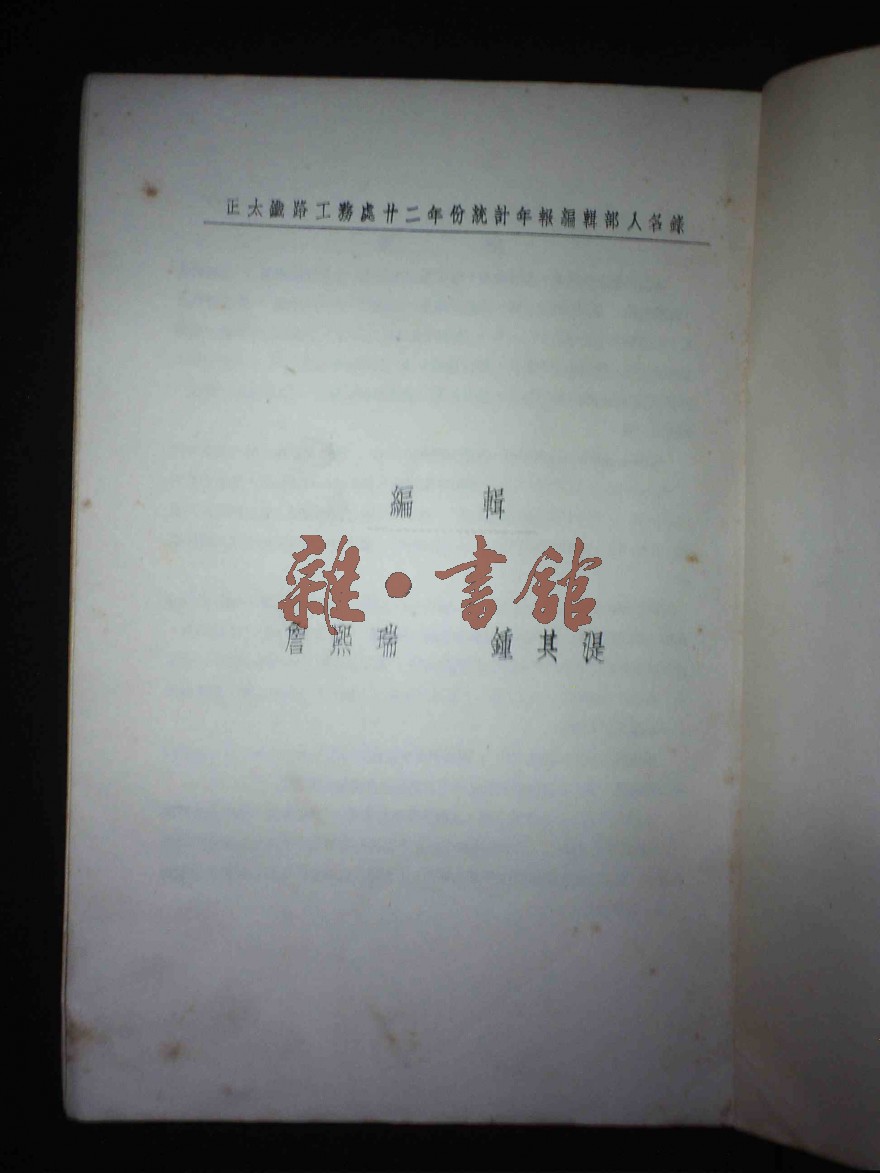 正太鐵路工務處廿二年份統計年報編輯部人名錄
編輯
雜·書館
詹熙瑞 鍾其湜